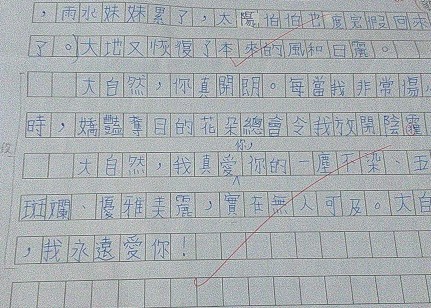 ，雨水妹妹累了，太陽伯伯也度完假回來
了。大地又恢復了本來的風和日麗。
大自然，你真開朗。每當我非常傷
時，嬌豔奪目的花朵總會令我放開陰霾
你，
大自然，我真愛你的一塵不染、五
斑斕、優雅美麗，實在無人可及。大自
，我永遠愛你！